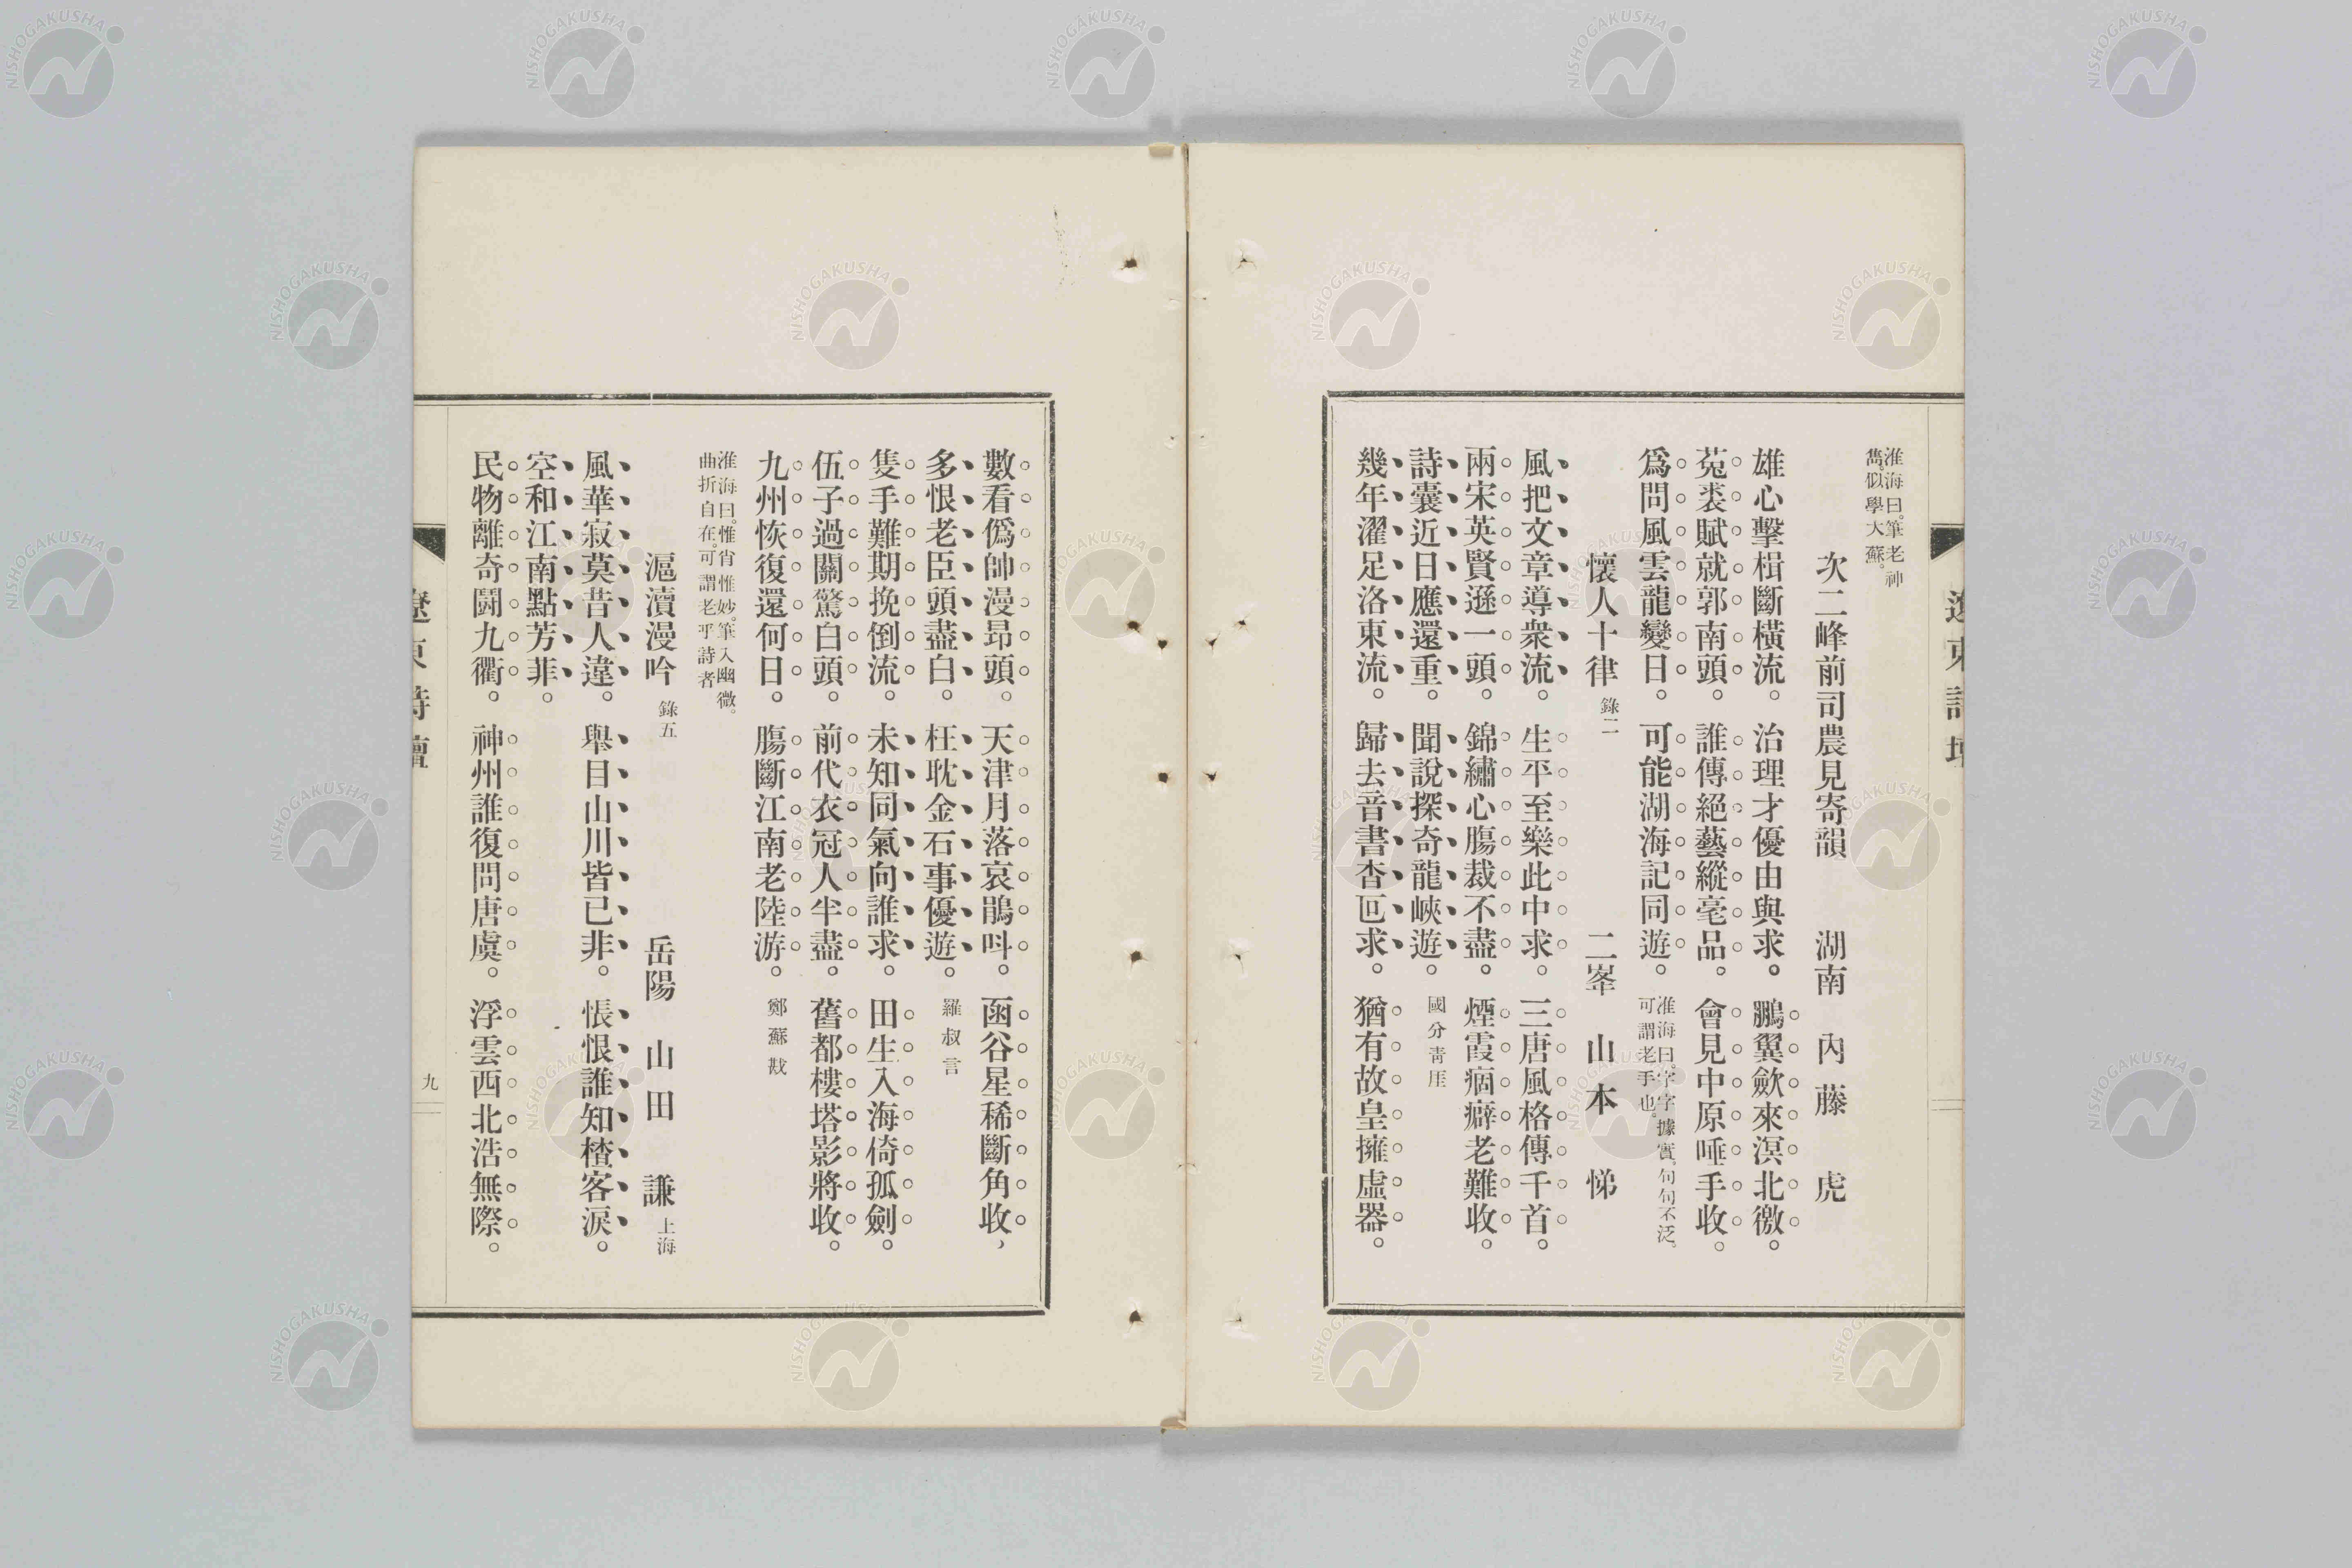 淮海曰。筆老神
雋。似學大蘇。
次二峰前司農見寄韻　湖南　內藤　虎
雄心擊楫斷橫流。治理才優由與求。鵬翼歘來溟北徼。
菟裘賦就郭南頭。誰傳絕藝縱毫品。會見中原唾手收。
爲問風雲龍變日。可能湖海記同遊。
淮海曰。字字據實。句句不泛。
可謂老手也。
懷人十律　錄二　二峯　山本　悌
風把文章導衆流。生平至樂此中求。三唐風格傳千首。
兩宋英賢遜一頭。錦繡心腸裁不盡。煙霞痼癖老難收。
詩囊近日應還重。聞說探奇龍峽遊。國分靑厓
幾年濯足洛東流。歸去音書杳叵求。猶有故皇擁虛器。
遼東詩壇
數看僞帥漫昂頭。天津月落哀鵑呌。函谷星稀斷角收、
多恨老臣頭盡白。枉耽金石事優遊。羅叔言
隻手難期挽倒流。未知同氣向誰求。田生入海倚孤劍。
伍子過關驚白頭。前代衣冠人半盡。舊都樓塔影將收。
九州恢復還何日。腸斷江南老陸游。鄭蘇戡
淮海曰。惟肖惟妙。筆入幽微。
曲折自在。可謂老乎詩者
滬瀆漫吟　錄五　岳陽　山田　謙　上海
風華寂莫昔人違。舉目山川皆已非。悵恨誰知楂客淚。
空和江南點芳菲。
民物離奇鬪九衢。神州誰復問唐虞。浮雲西北浩無際。
遼東詩壇
九
NISHOGAKUSHA